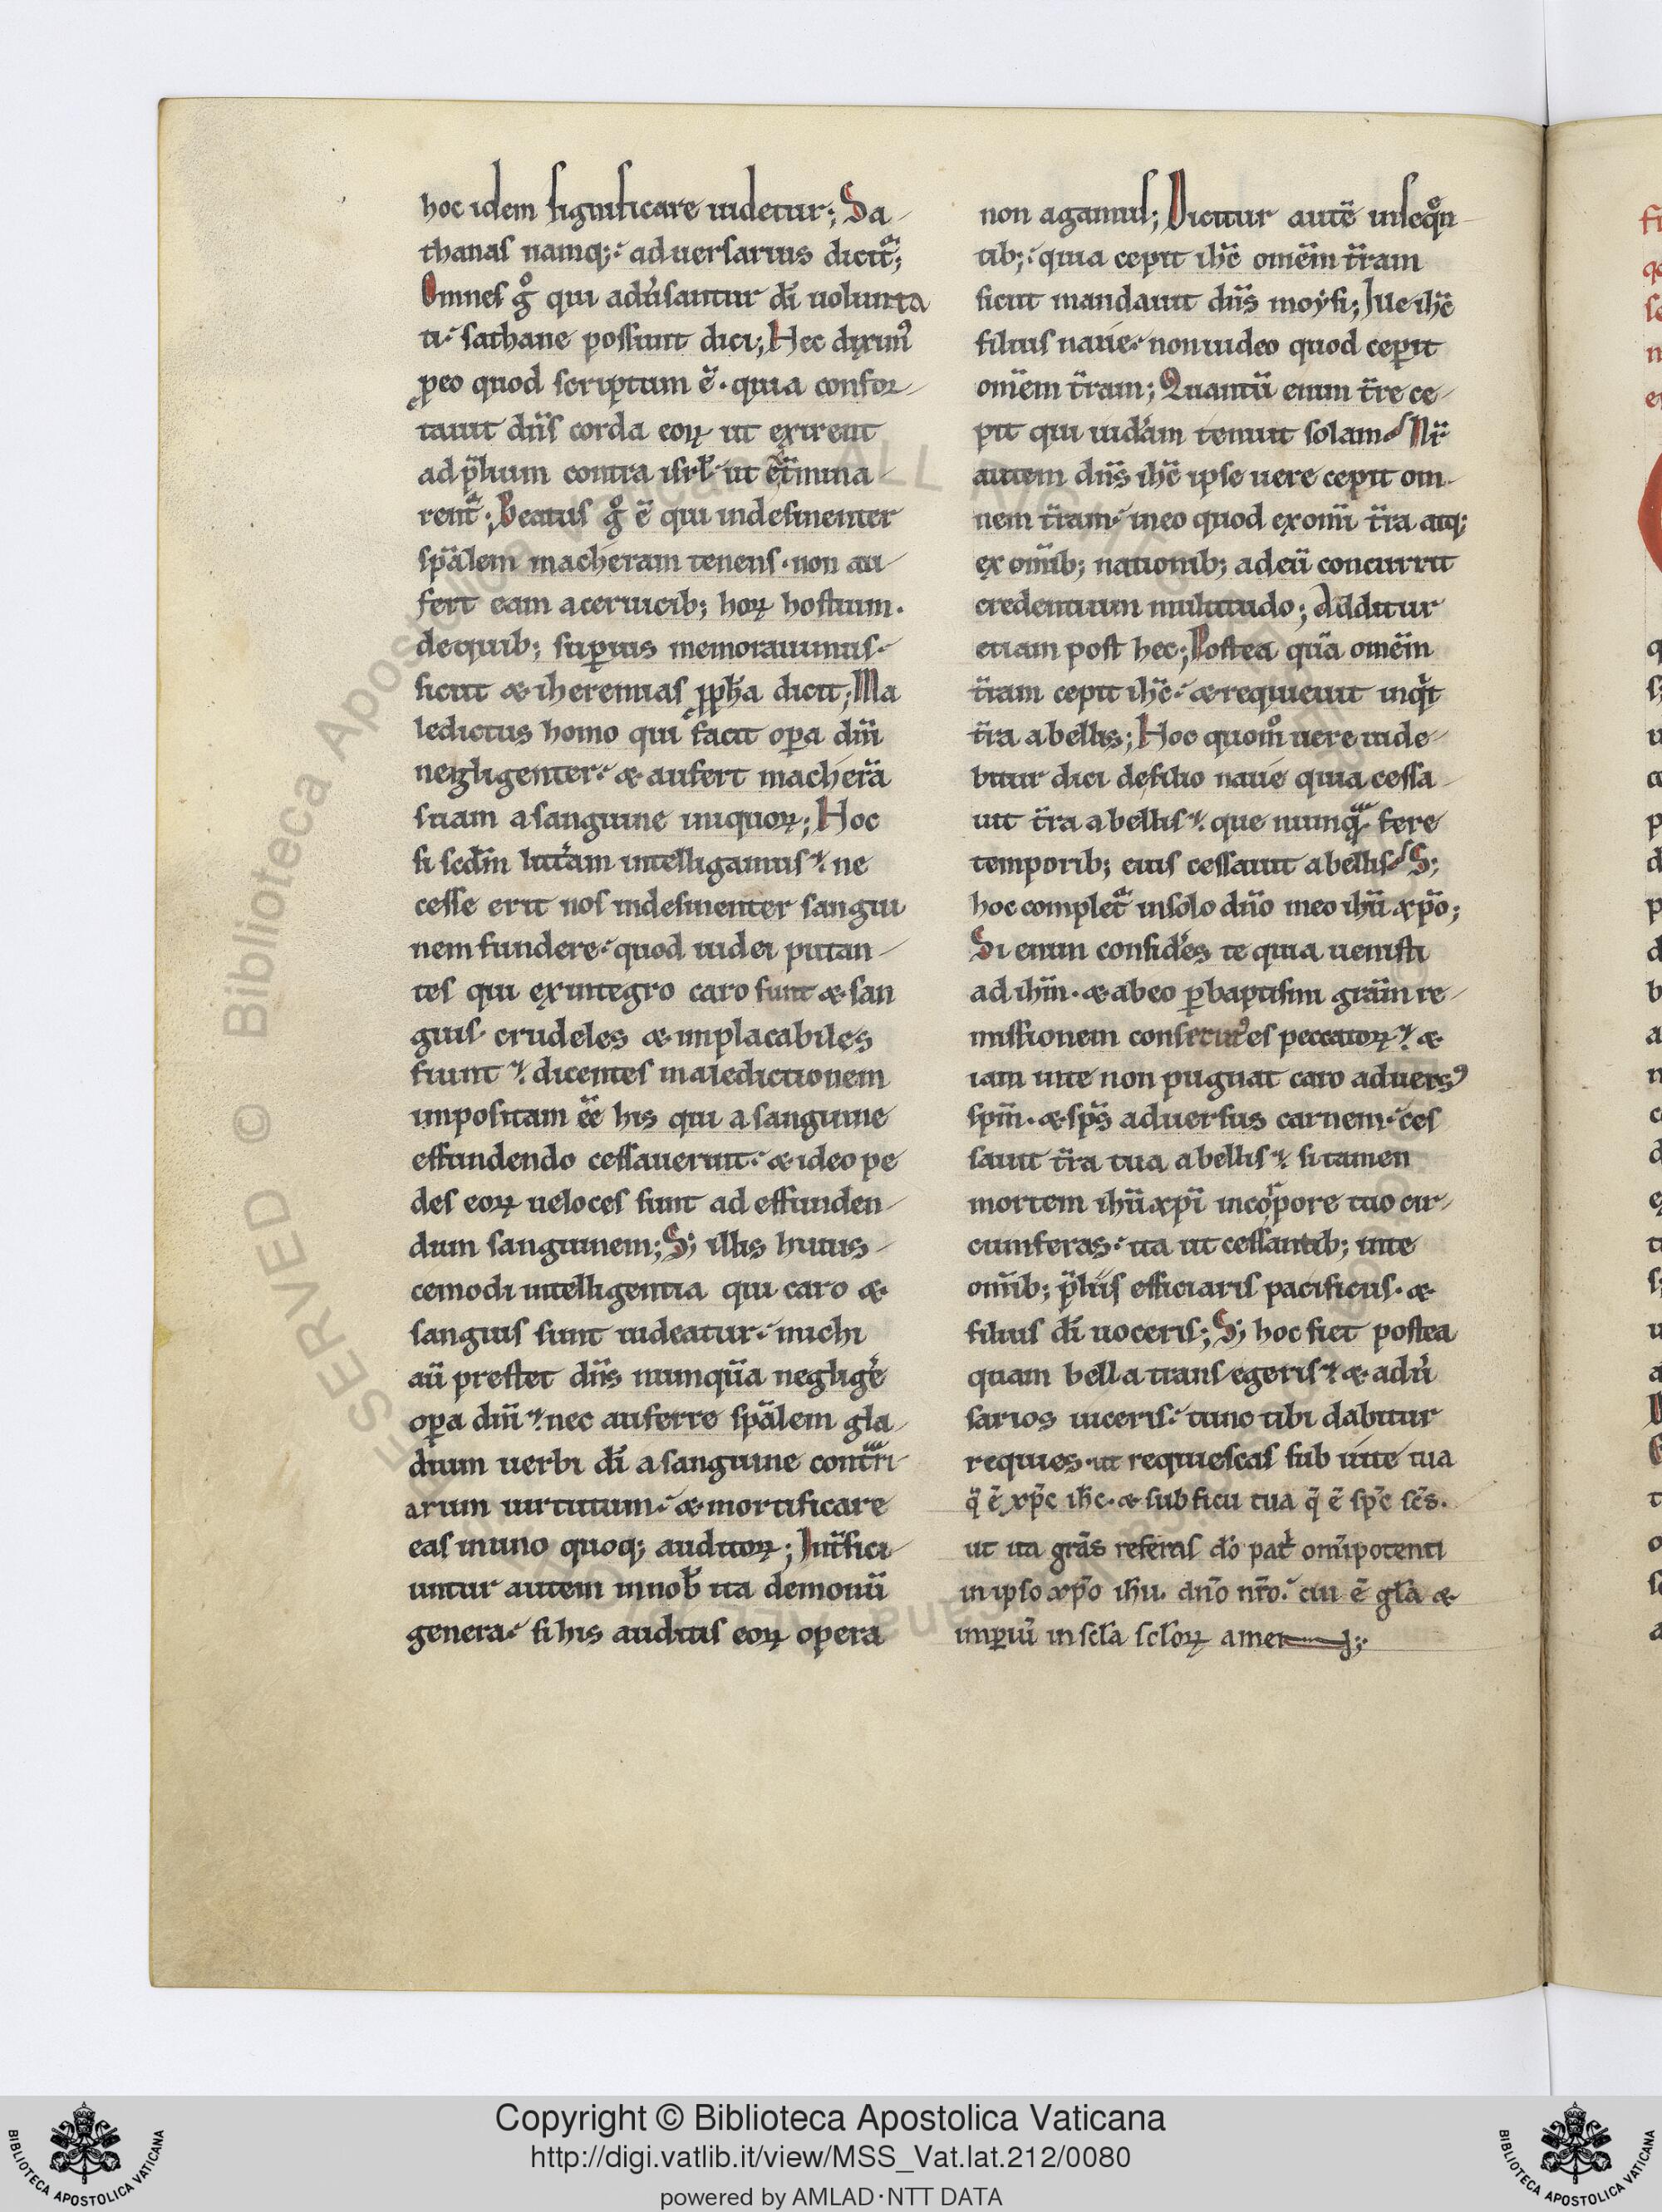 hoc idem significare uidetur; Sa-
thanas namq;: aduersarius dicitᷓ;
Omnes gͦ qui adu̾santur dī uolunta
ti: sathane possunt dici; Hec diximꝰ
ꝓeo quod scriptum ē. quia confor-
tauit dn̄s corda eoꝝ ut exirent
ad p̄lium contra isrl̄: ut ext̄mina-
rentᷓ; Beatus gͦ ē qui indesinenter
sp̄alem macheram tenens. non au-
fert eam aceruicib; hoꝝ hostium.
dequib; suꝑius memorauimus:
sicut & iheremias ꝓph̄a dicit; Ma
ledictus homo qui facit oꝑa dn̄i
negligenter: & aufert macherā
suam asanguine iniquoꝝ; Hoc
si scd̄m litt̄am intelligamus: ne
cesse erit nos indesinenter sangui
nem fundere: quod iudei putan-
tes qui exintegro caro sunt & san
guis crudeles & implacabiles
fiunt: dicentes maledictionem
impositam ēe his qui asanguine
effundendo cessauerint: & ideo pe
des eoꝝ ueloces sunt ad effunden-
dum sanguinem; S; illis huius-
cemodi intelligentia qui caro &
sanguis sunt uideatur: michi
aū prestet dn̄s nunquā neglig̾e
oꝑa dn̄i: nec auferre sp̄alem gla-
dium uerbi dī asanguine contᷓri-
arum uirtutum: & mortificare
eas inuno quoq; auditoꝝ; Int̄fici-
untur autem innob̄ ita demoniū
genera: si his auditis eoꝝ opera
non agamus; Dicitur autē inseqͦn-
tib;: quia cepit ih̄c omēm t̄ram
sicut mandauit dn̄s moysi; Jue ih̄c
filius naue: nonuideo quod ceperit
omēm t̄ram; Quantū enim t̄re ce-
pit qui iudēam tenuit solam? Nr̄
autem dn̄s ih̄c ipse uere cepit om-
nem t̄ram: ineo quod exomī t̄ra atq;
ex om̄ib; nationib; adeū concurrit
credentium multitudo; Additur
etiam post hec; Postea quā omēm
t̄ram cepit ih̄c: & requieuit inqͥt
t̄ra abellis; Hoc quomͦ uere uide-
bitur dici defilio naue quia cessa-
uit t̄ra abellis: que nunqᷓ fere
temporib; eius cessauit abellis? S;
hoc completᷓ insolo dn̄o meo ihū xp̄o;
Si enim consid̾es te quia uenisti
ad ihm̄. & abeo ꝑbaptismi grām re-
missionem consecut᷒es peccatoꝝ: &
iam inte non pugnat caro aduersꝰ
spm̄. & sp̄s aduersus carnem: ces
sauit t̄ra tua abellis: si tamen
mortem ihū xp̄i incorpore tuo cir-
cumferas: ita ut cessantib; inte
om̄ib; p̄liis efficiaris pacificus. &
filius dī uoceris; S; hoc fiet postea
quam bella transegeris: & adu̾
sarios uiceris: tunc tibi dabitur
requies. ut requiescas sub uite tua
q̄ ē xp̄c ih̄c. & subficu tua q̄ ē sp̄c sc̄s.
ut ita grās referas dō pat̾ omīpotenti
in ipso xp̄o ihū. dn̄o nr̄o: cui ē gl̄a &
imꝑiū in scl̄a scl̄oꝝ amen;
ALL RIGHTS RESERVED © Biblioteca Apostolica Vaticana
Copyright © Biblioteca Apostolica Vaticana
http://digi.vatlib.it/view/MSS_Vat.lat.212/0080
powered by AMLAD·NTT DATA
BIBLIOTECA APOSTOLICA VATICANA
BIBLIOTECA APOSTOLICA VATICANA